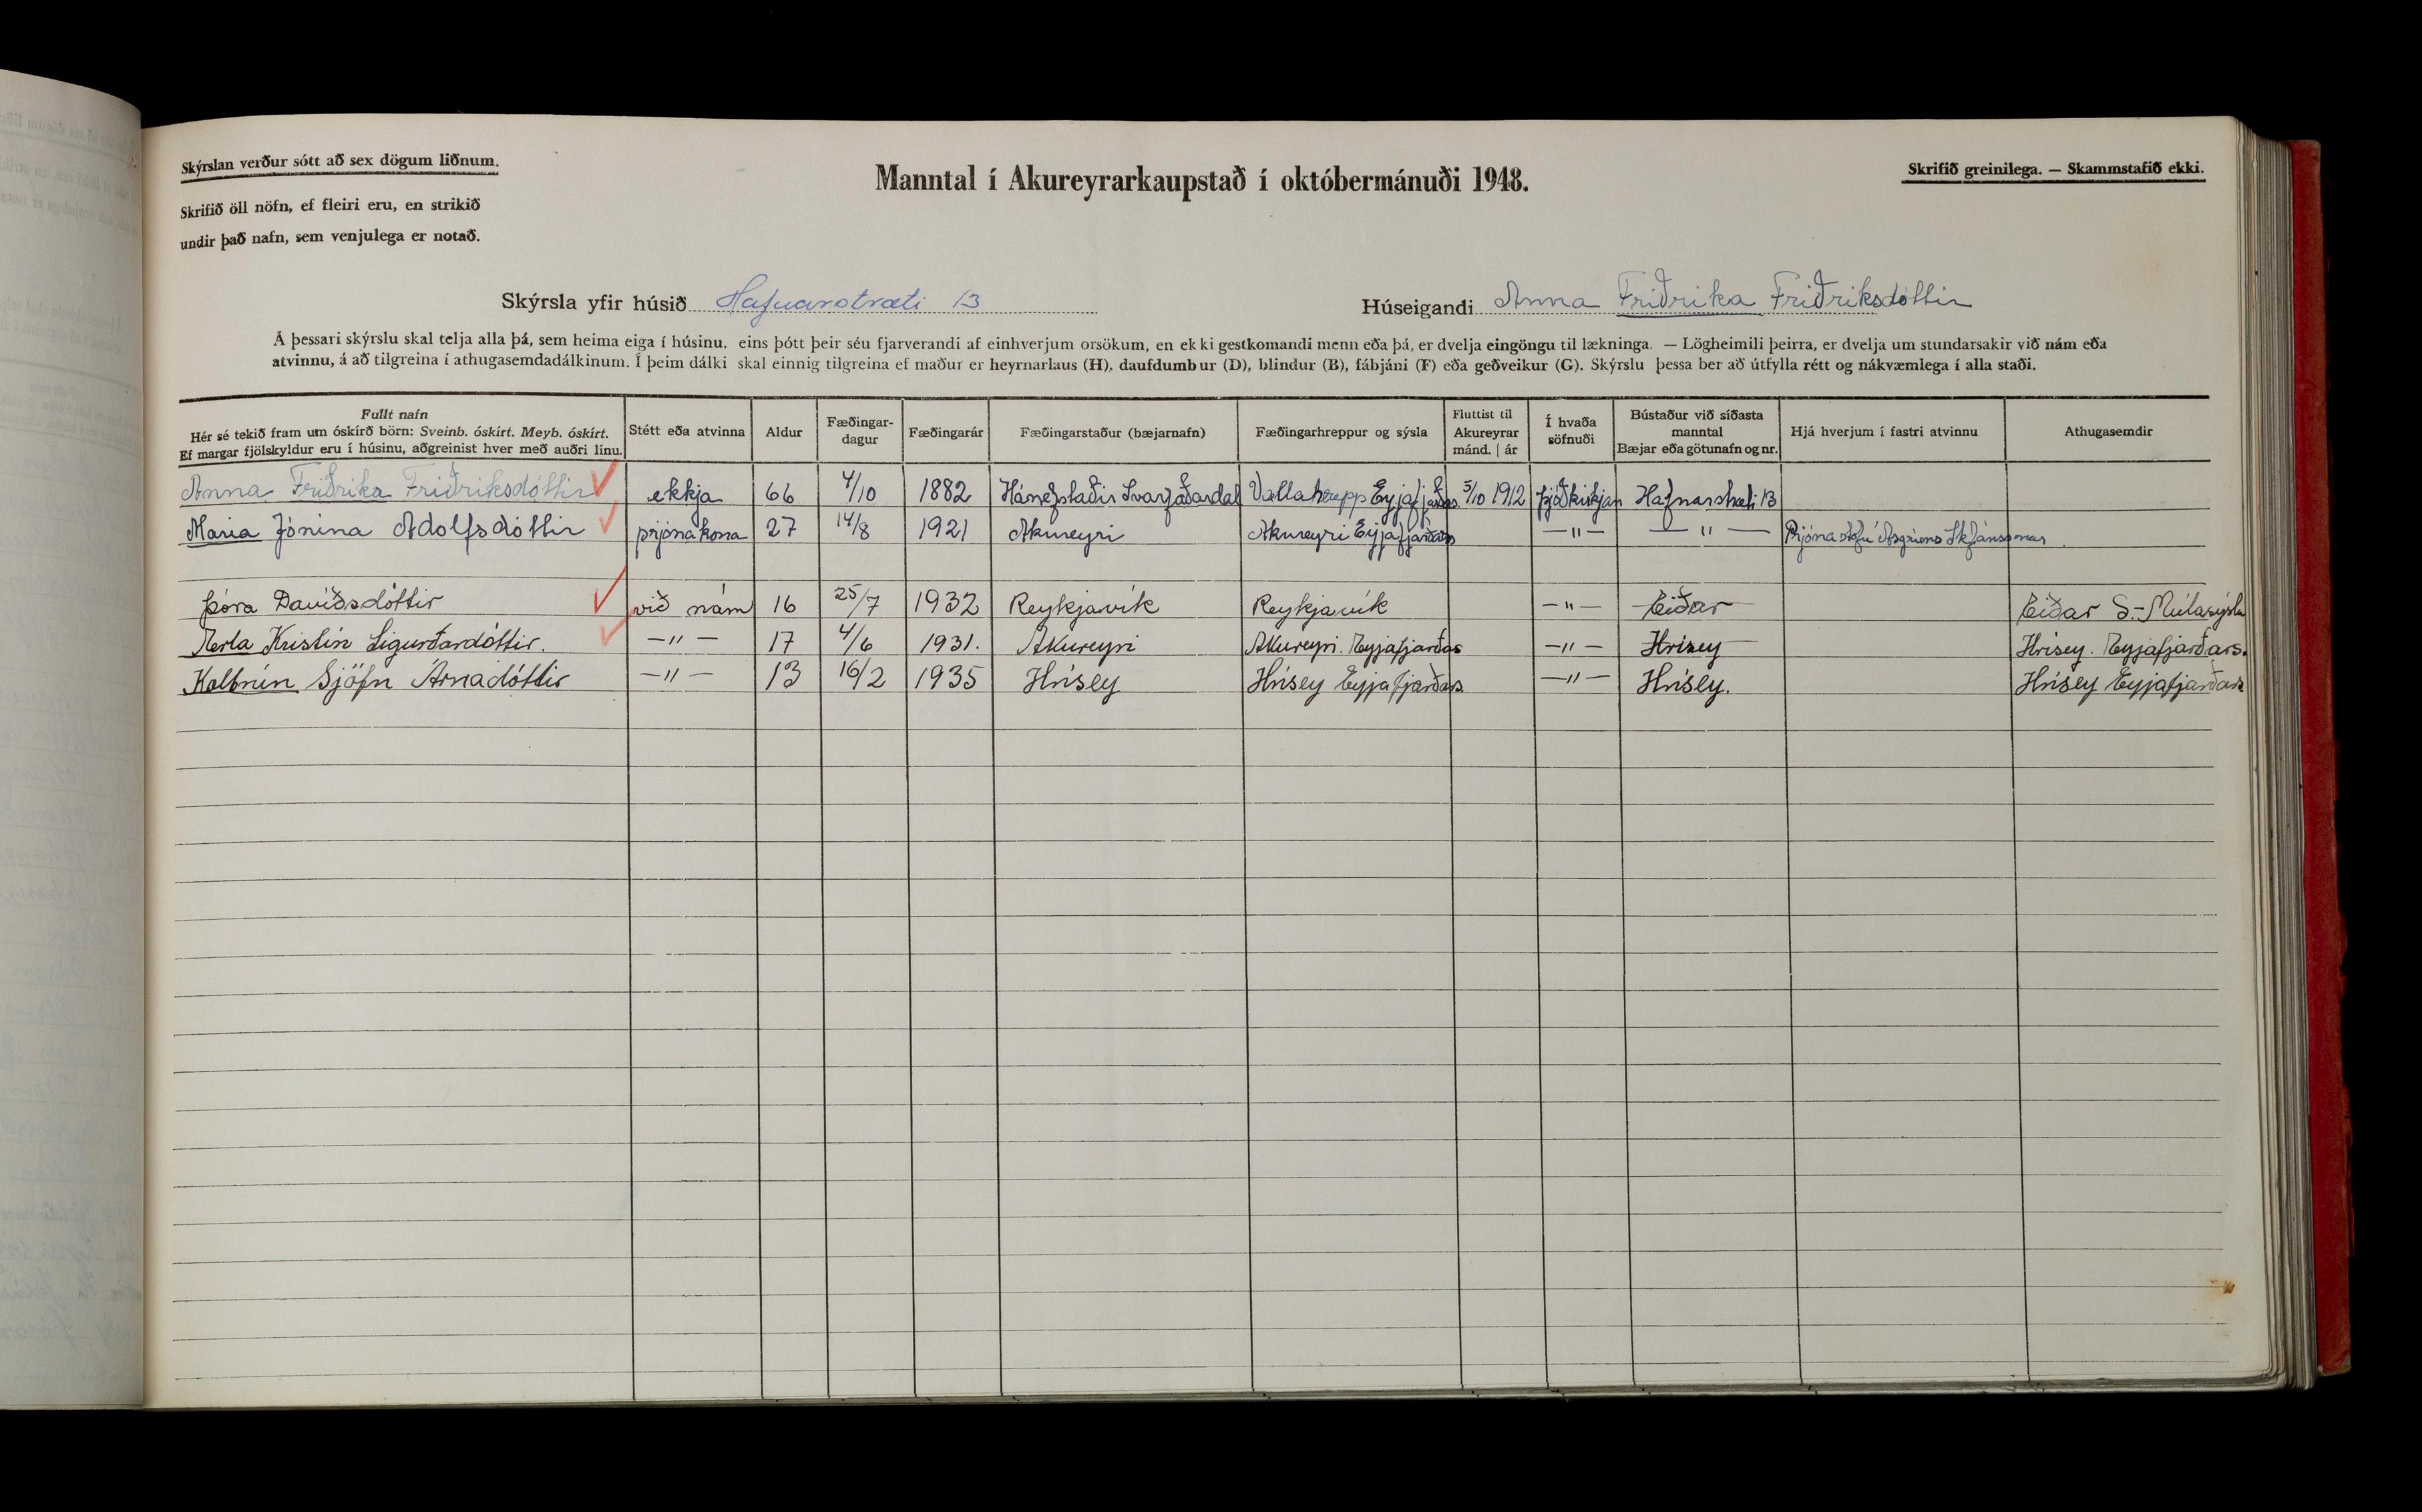 Skýrslan verður sótt að sex dögum liðnum.
Skrifið öll nöfn, ef fleiri eru, en strikið
undir það nafn, sem venjulega er notað.
Manntal í Akureyrarkaupstað í októbermánuði 1948.
Skrifið greinilega. — Skammstafið ekki.
Skýrsla yfir húsið Hafnarstræti 13
Húseigandi Anna Friðrika Friðriksdóttir
Á þessari skýrslu skal telja alla þá, sem heima eiga í húsinu, eins þótt þeir séu fjarverandi af einhverjum orsökum, en ekki gestkomandi menn eða þá, er dvelja eingöngu til lækninga. — Lögheimili þeirra, er dvelja um stundarsakir við nám eða
atvinnu, á að tilgreina í athugasemdadálkinum. Í þeim dálki skal einnig tilgreina ef maður er heyrnarlaus (H), daufdumbur (D), blindur (B), fábjáni (F) eða geðveikur (G). Skýrslu þessa ber að útfylla rétt og nákvæmlega í alla staði.
Fullt nafn
Hér sé tekið fram um óskírð börn: Sveinb. óskírt. Meyb. óskírt.
Ef margar fjölskyldur eru í húsinu, aðgreinist hver með auðri línu.
Stétt eða atvinna
Aldur
Fæðingar-
dagur
Fæðingarár
Fæðingarstaður (bæjarnafn)
Fæðingarhreppur og sýsla
Fluttist til
Akureyrar
mánd. | ár
Í hvaða
söfnuði
Bústaður við síðasta
manntal
Bæjar eða götunafn og nr.
Hjá hverjum í fastri atvinnu
Athugasemdir
Anna Friðrika Friðriksdóttir ekkja 66 4/10 1882 Hánefsstaðir Svarfaðardal Vallahrepp Eyjafjarðars. 5/10 1912 þjóðkirkjan Hafnarstræti 13
Maria Jónína Adolfsdóttir prjónakona 27 14/8 1921 Akureyri Akureyri Eyjafjarðars —"— —"— Prjónastofu Ásgríms Stefánssonar
Þóra Davíðsdóttir við nám 16 25/7 1932 Reykjavík Reykjavík —"— Eiðar Eiðar S-Múlasýslu
Kristín Sigurðardóttir. —"— 17 4/6 1931. Akureyri Akureyri. Eyjafjarðas —"— Hrísey Hrísey. Eyjafjarðars.
Kolbrún Sjöfn Árnadóttir —"— 13 16/2 1935 Hrísey Hrísey Eyjafjarðars —"— Hrísey. Hrísey Eyjafjarðars